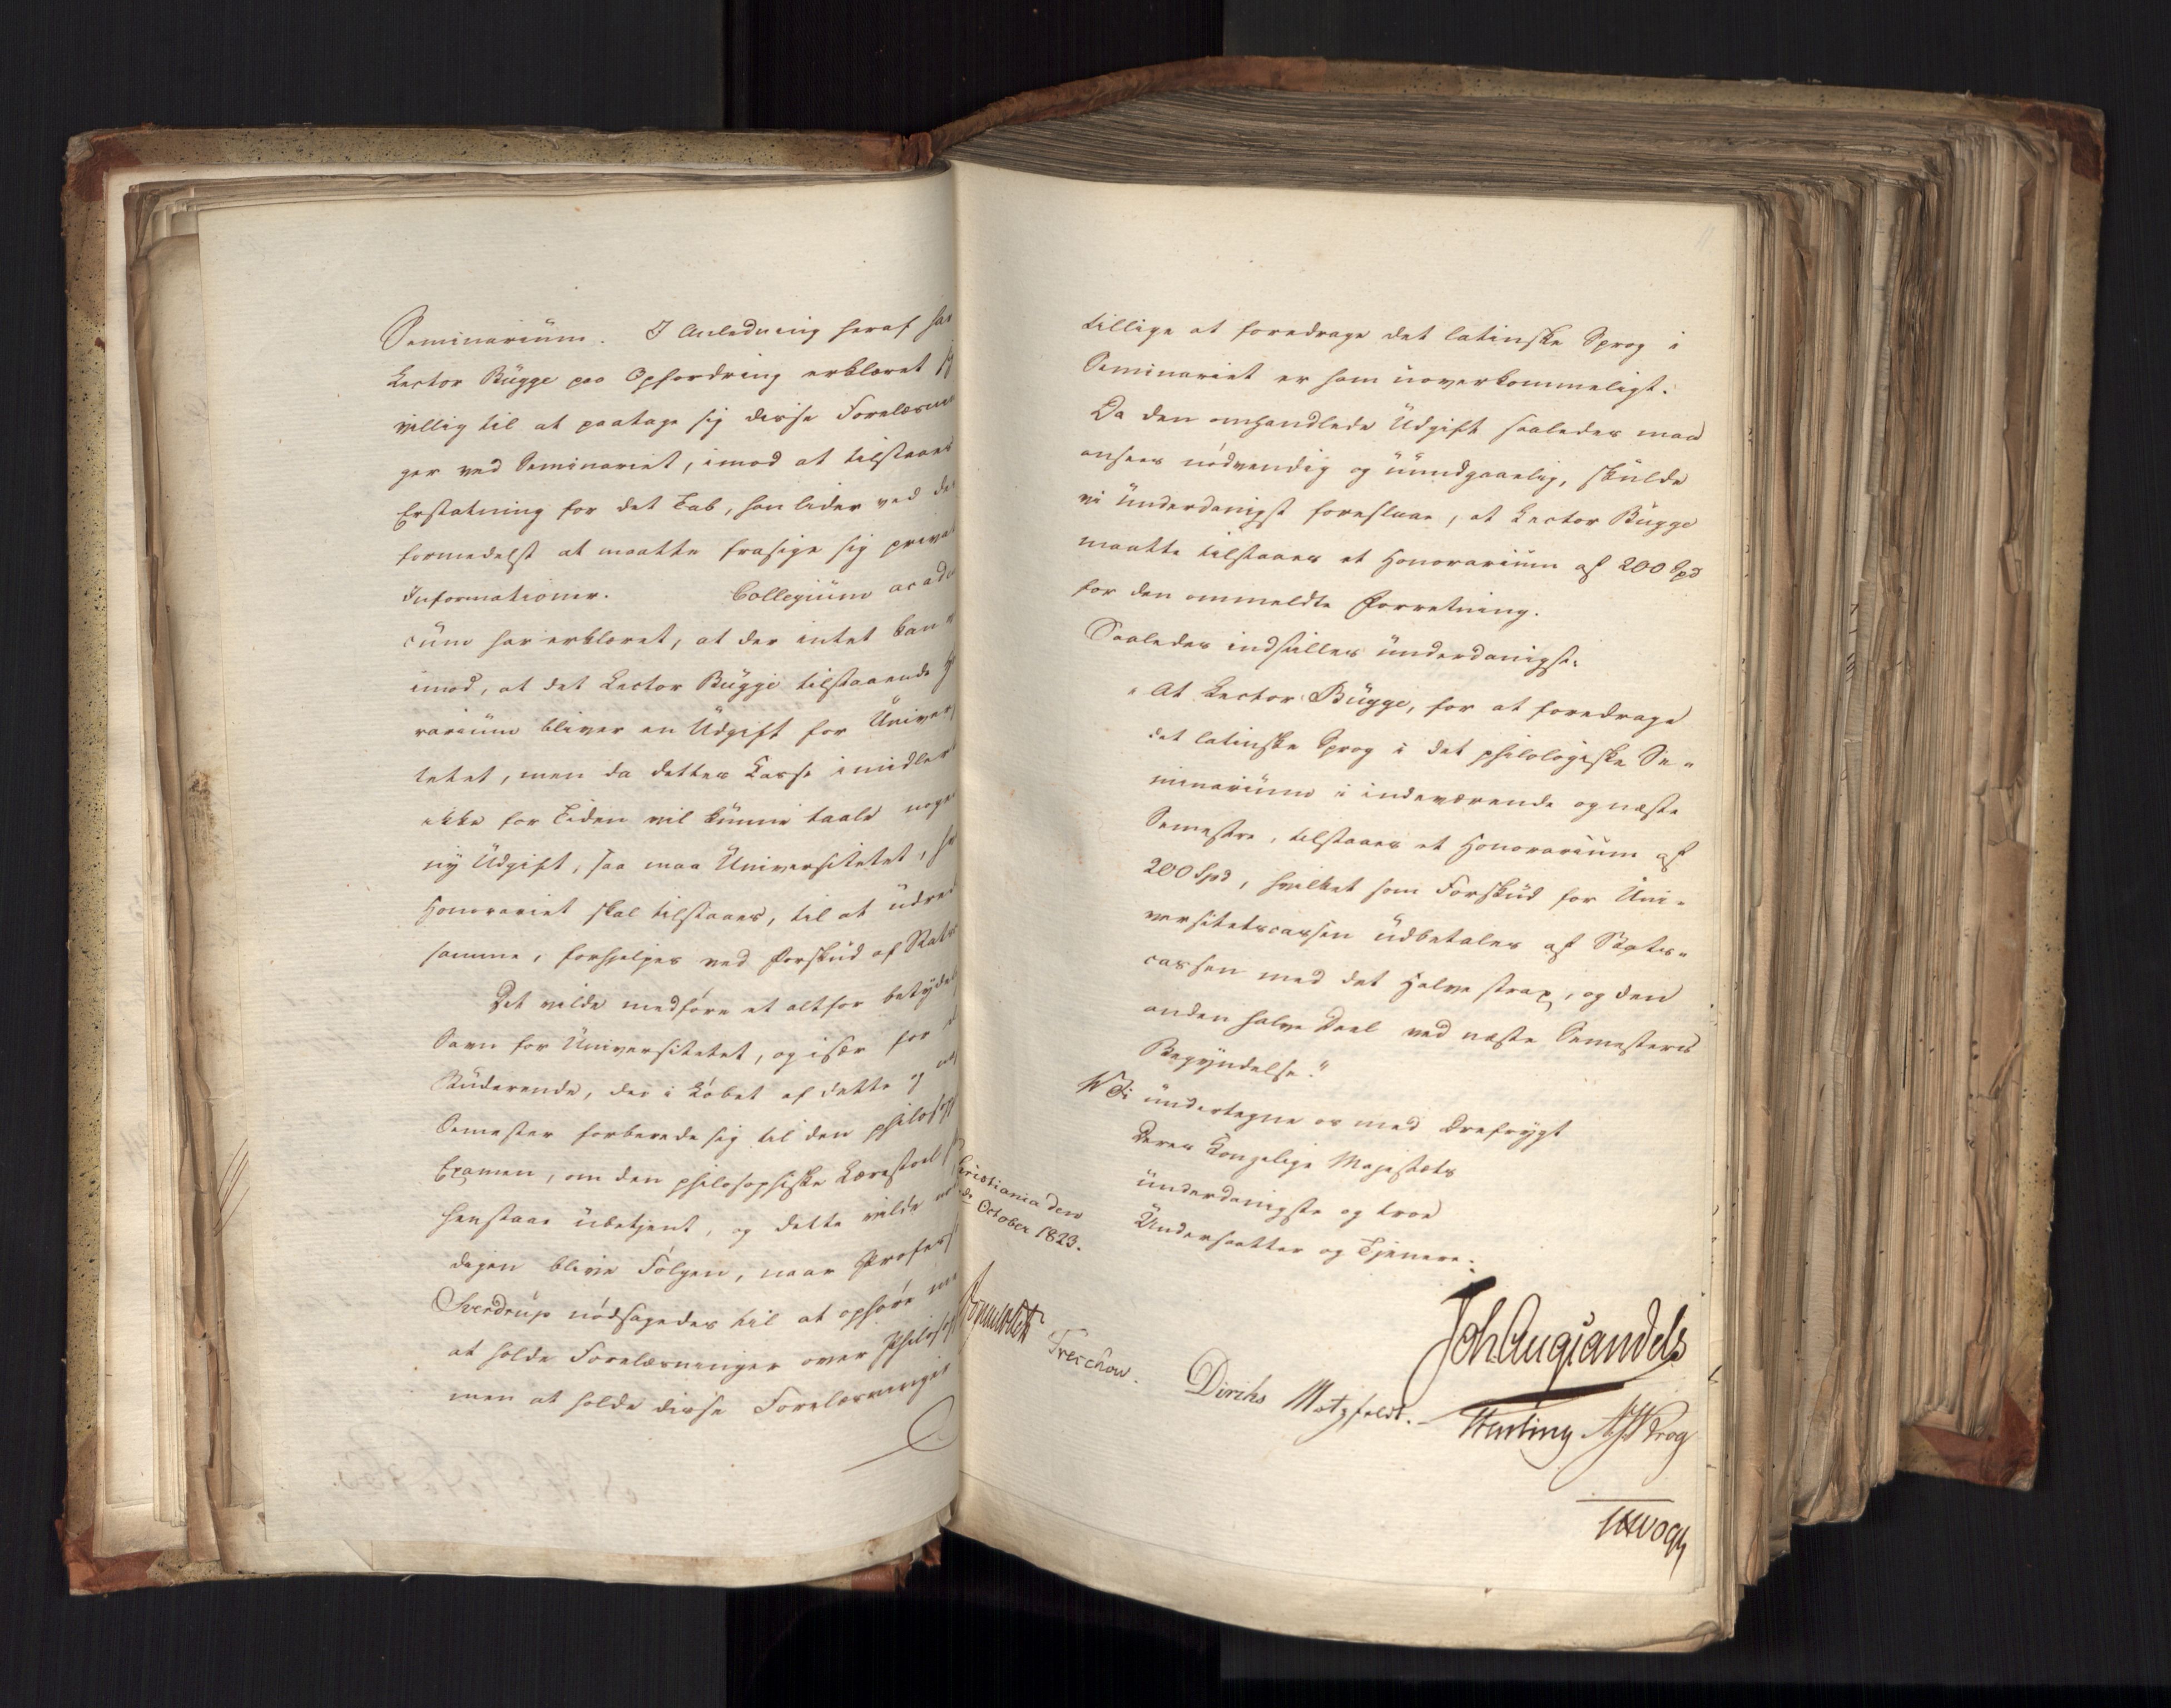 Seminarium. I Anledning heraf har
Lector Bugge paa Opfordring erklæret sig
villig til at paatage sig disse Forelæsnin
ger ved Seminariet, imod at tilstaaes
Erstatning for det Tab, han lider ved de
formedelst at maatte frasige sig priva
Informationer. Collegium acade
cum har erklæret, at der intet kan
imod, at det Lector Bugge tilstaaende Ho
rarium bliver en Udgift for Univers
tetet, men da dettes Casse imidlert
ikke for Tiden vil kunne taale nogen
ny Udgift, saa maa Universitetet, hvis
Honorariet skal tilstaaes, til at udred
samme, forhjelpes ved Forskud af Stats
Det vilde medføre et altfor betydel
Savn for Universitetet, og især for de
Studerende, der i Løbet af dette og næs
Semester forberede sig til den philosoph
Examen, om den philosophiske Lærestoel s
henstaae ubetjent, og dette vilde nød
digen blive Følgen, naar Profess
Sverdrup nødsagedes til at ophøre med
at holde Forelæsninger over Philosoph
men at holde disse Forelæsninger
tillige at foredrage det latinske Sprog i
Seminariet er ham uoverkommeligt.
Da den omhandlede Udgift saaledes maa
ansees nødvendig og uundgaaelig, skulde
vi underdanigst foreslaae, at Lector Bugge
maatte tilstaaes et Honorarium af 200 Spd
for den ommeldte Forretning.
Saaledes indstilles underdanigst:
"At Lector Bugge, for at foredrage
det latinske Sprog i det philologiske Se-
minarium i indeværende og næste
Semestre, tilstaaes et Honorarium af
200 Spd, hvilket som Forskud for Uni-
versitetscassen udbetales af Stats-
cassen med det Halve strax, og den
anden halve Deel ved næste Semesters
Begyndelse."
Vi undertegne os med Ærefrygt
Deres Kongelige Majestæts
underdanigste og troe
Undersaatter og Tjenere:
Christiania den
October 1823.
Joh Aug Sandels
Sommerfeldt Treschow. Diriks Motzfeldt. Fasting